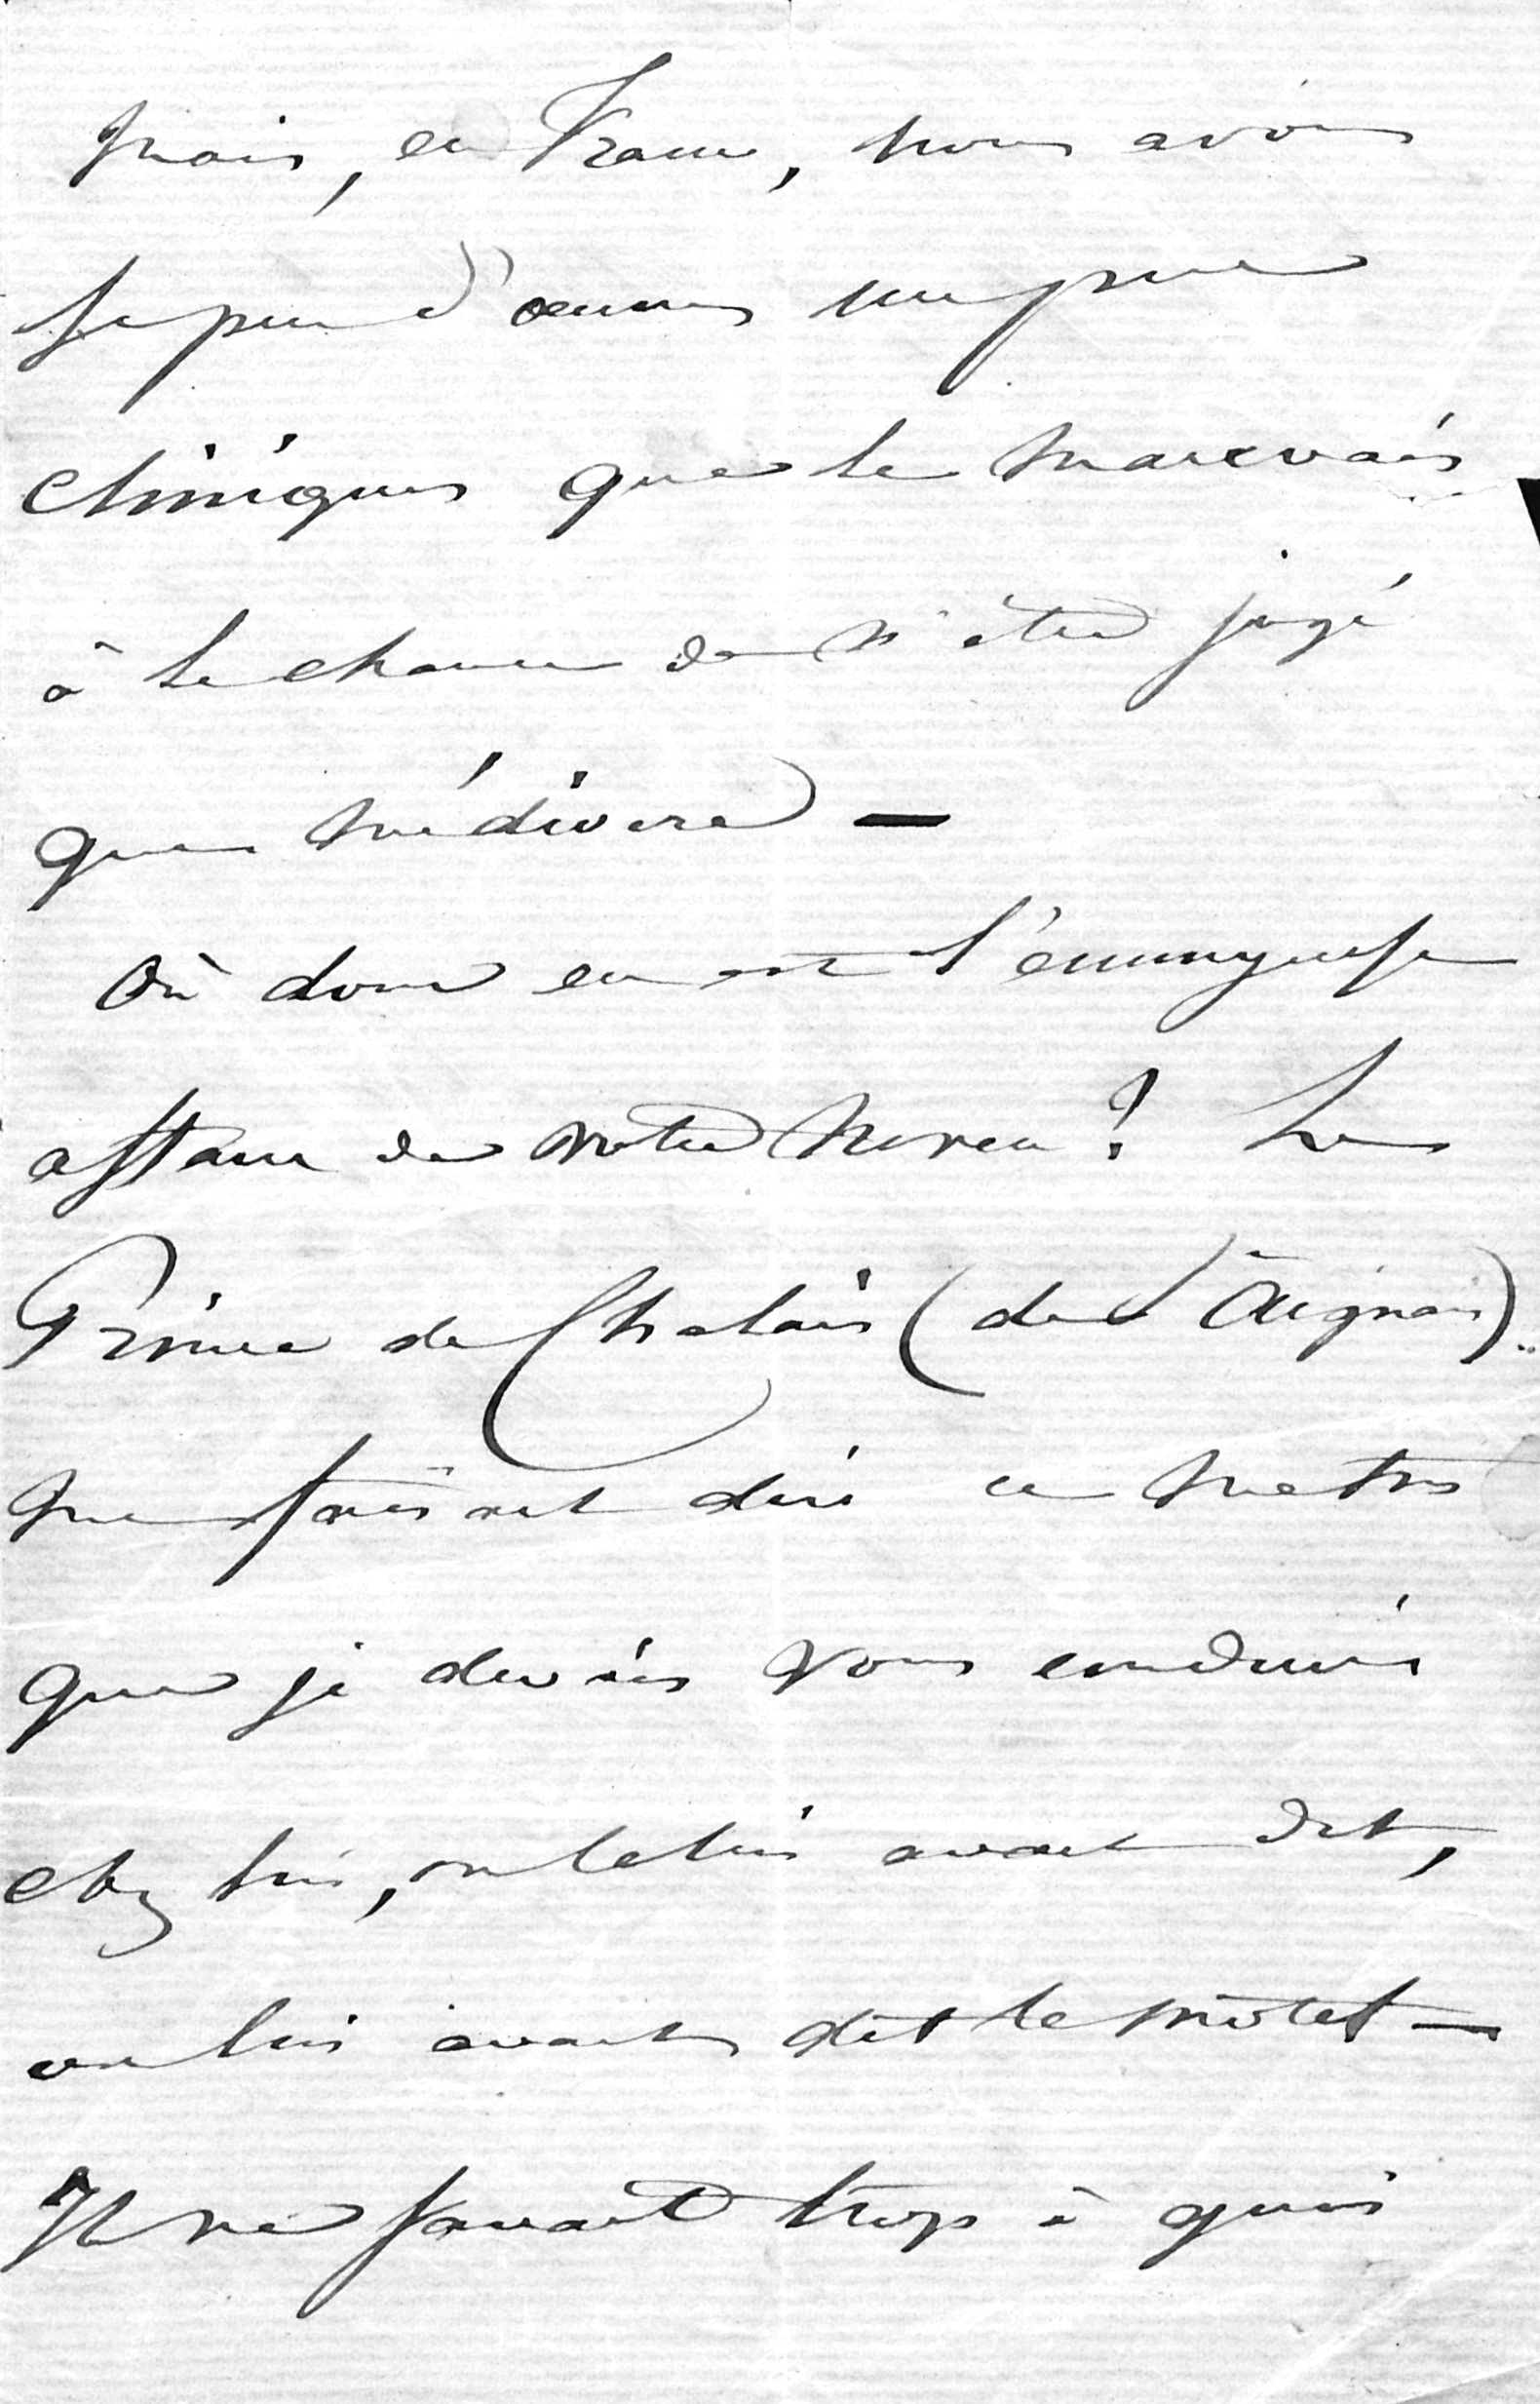 Mais, en France, nous avons
si peu d'œuvres
cliniques que le mauvais
a la chance de n'être jugé
que médiocre —
Où donc en est l'ennuyeuse
affaire de votre neveu ? Le
Prince de Chalais (de St Aignan)
me faisait dire ce matin
que je devais vous conduire
chez lui, on le lui avait dit,
on lui avait dit le motif —
Il ne savait trop à quoi